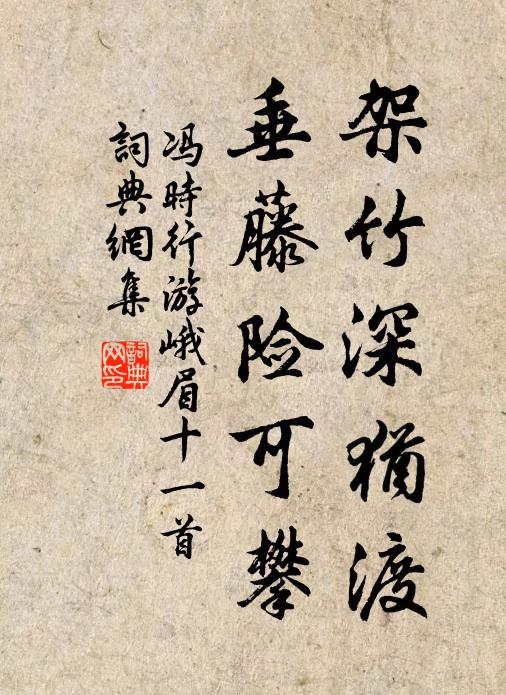 架竹深猶渡
垂藤險可攀
冯時行游峨眉十一首
詞典網集
詞典
网印